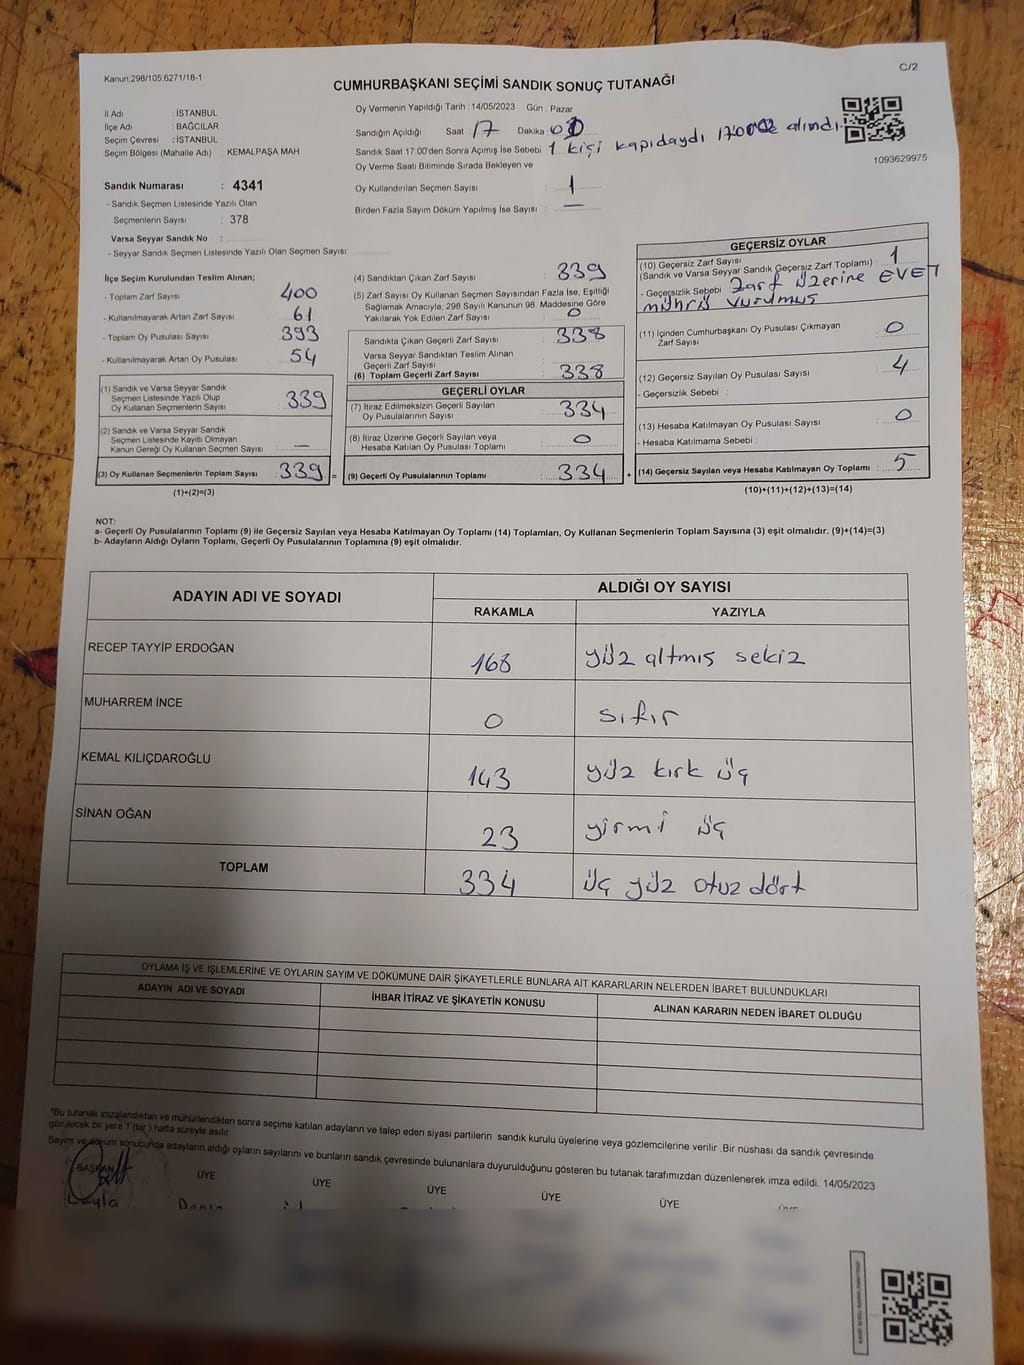 Kanun;298/105,6271/18-1
C/2
CUMHURBAŞKANI SEÇİMİ SANDIK SONUÇ TUTANAĞI
İl Adı : İSTANBUL
İlçe Adı : BAĞCILAR
Seçim Çevresi : İSTANBUL
Seçim Bölgesi (Mahalle Adı) : KEMALPAŞA MAH
Sandık Numarası : 4341
- Sandık Seçmen Listesinde Yazılı Olan
Seçmenlerin Sayısı : 378
Varsa Seyyar Sandık No :
- Seyyar Sandık Seçmen Listesinde Yazılı Olan Seçmen Sayısı:
Oy Vermenin Yapıldığı Tarih : 14/05/2023 Gün : Pazar
Sandığın Açıldığı Saat 17 Dakika
Sandık Saat 17:00'den Sonra Açımış İse Sebebi 1 kişi kapıdaydı alındı
Oy Verme Saati Bitiminde Sırada Bekleyen ve
Oy Kullandırılan Seçmen Sayısı : 1
Birden Fazla Sayım Döküm Yapılmış İse Sayısı : —
1093629975
İlçe Seçim Kurulundan Teslim Alınan;
- Toplam Zarf Sayısı : 400
- Kullanılmayarak Artan Zarf Sayısı : 61
- Toplam Oy Pusulası Sayısı : 393
- Kullanılmayarak Artan Oy Pusulası : 54
(1) Sandık ve Varsa Seyyar Sandık
Seçmen Listesinde Yazılı Olup
Oy Kullanan Seçmenlerin Sayısı : 339
(2) Sandık ve Varsa Seyyar Sandık
Seçmen Listesinde Kayıtlı Olmayan
Kanun Gereği Oy Kullanan Seçmen Sayısı : —
(3) Oy Kullanan Seçmenlerin Toplam Sayısı : 339 =
(1)+(2)=(3)
(4) Sandıktan Çıkan Zarf Sayısı : 339
(5) Zarf Sayısı Oy Kullanan Seçmen Sayısından Fazla İse, Eşitliği
Sağlamak Amacıyla, 298 Sayılı Kanunun 98. Maddesine Göre
Yakılarak Yok Edilen Zarf Sayısı : 0
Sandıkta Çıkan Geçerli Zarf Sayısı : 338
Varsa Seyyar Sandıktan Teslim Alınan
Geçerli Zarf Sayısı :
(6) Toplam Geçerli Zarf Sayısı : 338
GEÇERLİ OYLAR
(7) İtiraz Edilmeksizin Geçerli Sayılan
Oy Pusulalarının Sayısı : 334
(8) İtiraz Üzerine Geçerli Sayılan veya
Hesaba Katılan Oy Pusulası Toplamı : 0
(9) Geçerli Oy Pusulalarının Toplamı : 334 +
GEÇERSİZ OYLAR
(10) Geçersiz Zarf Sayısı
(Sandık ve Varsa Seyyar Sandık Geçersiz Zarf Toplamı) : 1
- Geçersizlik Sebebi Zarf üzerine EVET
mührü vurulmuş
(11) İçinden Cumhurbaşkanı Oy Pusulası Çıkmayan
Zarf Sayısı : 0
(12) Geçersiz Sayılan Oy Pusulası Sayısı : 4
- Geçersizlik Sebebi :
(13) Hesaba Katılmayan Oy Pusulası Sayısı : 0
- Hesaba Katılmama Sebebi :
(14) Geçersiz Sayılan veya Hesaba Katılmayan Oy Toplamı : 5
(10)+(11)+(12)+(13)=(14)
NOT:
a- Geçerli Oy Pusulalarının Toplamı (9) ile Geçersiz Sayılan veya Hesaba Katılmayan Oy Toplamı (14) Toplamları, Oy Kullanan Seçmenlerin Toplam Sayısına (3) eşit olmalıdır. (9)+(14)=(3)
b- Adayların Aldığı Oyların Toplamı, Geçerli Oy Pusulalarının Toplamına (9) eşit olmalıdır.
ADAYIN ADI VE SOYADI
ALDIĞI OY SAYISI
RAKAMLA YAZIYLA
RECEP TAYYİP ERDOĞAN 168 yüz altmış sekiz
MUHARREM İNCE 0 sıfır
KEMAL KILIÇDAROĞLU 143 yüz kırk üç
SİNAN OĞAN 23 yirmi üç
TOPLAM 334 üç yüz otuz dört
OYLAMA İŞ VE İŞLEMLERİNE VE OYLARIN SAYIM VE DÖKÜMÜNE DAİR ŞİKAYETLERLE BUNLARA AİT KARARLARIN NELERDEN İBARET BULUNDUKLARI
ADAYIN ADI VE SOYADI İHBAR İTİRAZ VE ŞİKAYETİN KONUSU ALINAN KARARIN NEDEN İBARET OLDUĞU
*Bu tutanak imzalandıktan ve mühürlendikten sonra seçime katılan adayların ve talep eden siyasi partilerin sandık kurulu üyelerine veya gözlemcilerine verilir .Bir nüshası da sandık çevresinde
görülecek bir yere 1 (bir ) hafta süreyle asılır.
Sayım ve döküm sonucunda adayların aldığı oyların sayılarını ve bunların sandık çevresinde bulunanlara duyurulduğunu gösteren bu tutanak tarafımızdan düzenlenerek imza edildi. 14/05/2023
BAŞKAN ÜYE ÜYE ÜYE ÜYE ÜYE
Leyla